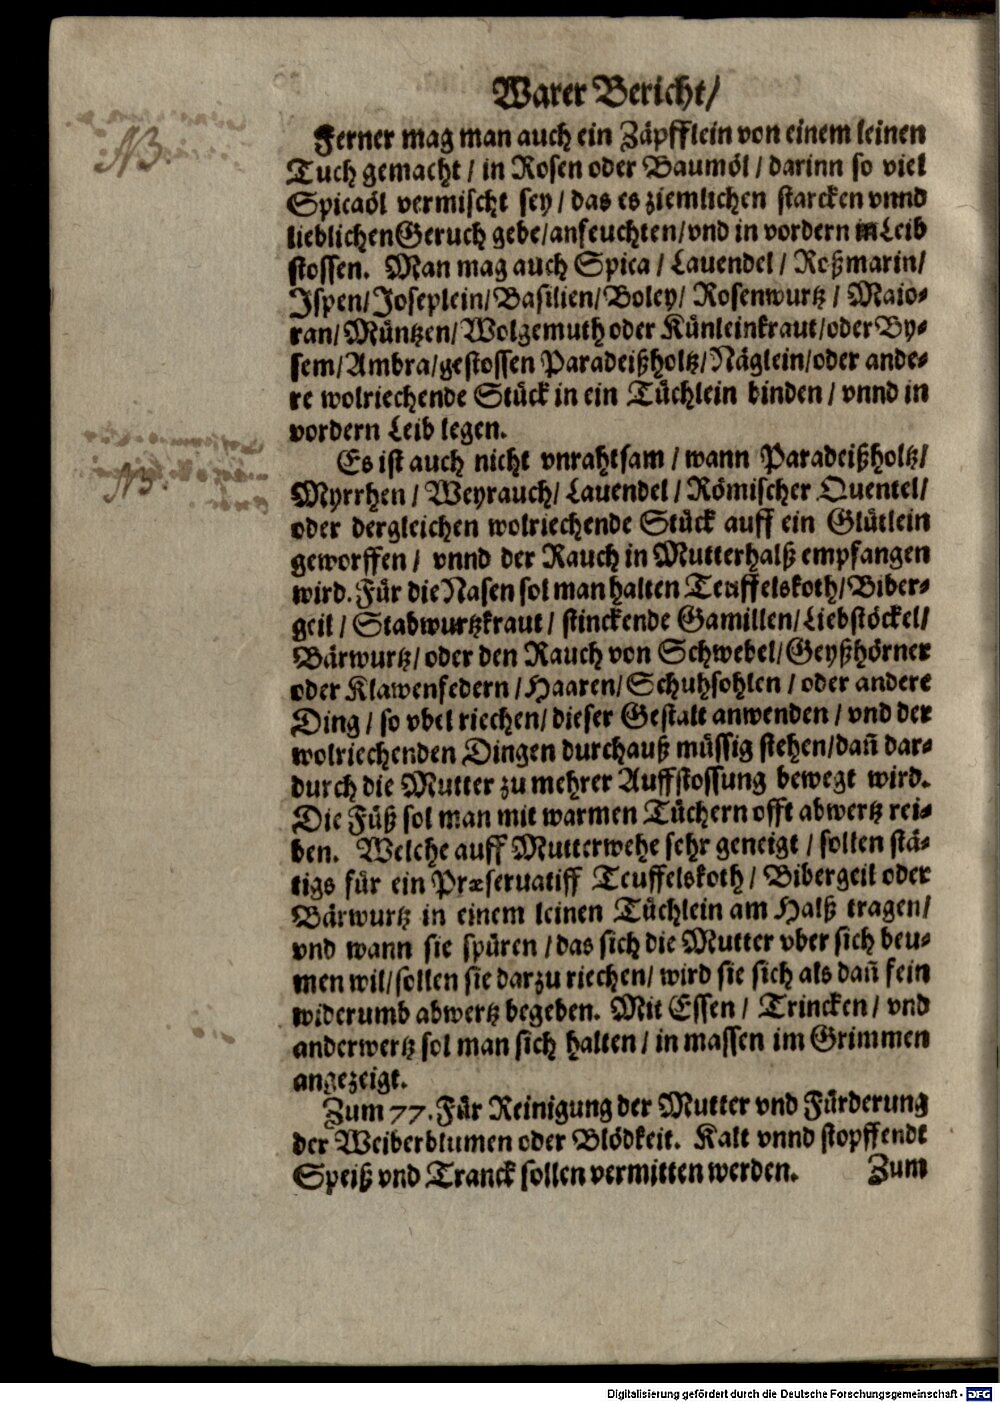 Warer Bericht/
Ferner mag man auch ein Zäpfflein von einem leinen
Tuch gemacht / in Rosen oder Baumöl / darinn so viel
Spicaöl vermischt sey / das es ziemlichen starcken vnnd
lieblichen Geruch gebe/anfeuchten/vnd in vordern in Leib
stossen. Man mag auch Spica / Lauendel / Roßmarin/
Jspen/Joseplein/Basilien/Boley/ Rosenwurtz / Maio-
ran/Müntzen/Wolgemuth oder Künleinkraut/oder By-
sem/Ambra/gestossen Paradeißholtz/Näglein/oder ande-
re wolriechende Stück in ein Tüchlein binden / vnnd in
vordern Leib legen.
Es ist auch nicht vnrahtsam / wann Paradeißholtz/
Myrrhen / Weyrauch/ Lauendel / Römischer Quentel/
oder dergleichen wolriechende Stück auff ein Glütlein
geworffen / vnnd der Rauch in Mutterhalß empfangen
wird. Für die Nasen sol man halten Teuffelskoth/Biber-
geil / Stabwurtzkraut / stinckende Gamillen/Liebstöckel/
Bärwurtz/oder den Rauch von Schwebel/Geyßhörner
oder Klawenfedern /Haaren/Schuhsohlen / oder andere
Ding / so vbel riechen/dieser Gestalt anwenden / vnd der
wolriechenden Dingen durchauß müssig stehen/dañ dar-
durch die Mutter zu mehrer Auffstossung bewegt wird.
Die Füß sol man mit warmen Tüchern offt abwertz rei-
ben. Welche auff Mutterwehe sehr geneigt / sollen stä-
tigs für ein Præseruatiff Teuffelskoth/ Bibergeil oder
Bärwurtz in einem leinen Tüchlein am Halß tragen/
vnd wann sie spüren /das sich die Mutter vber sich beu-
men wil/sollen sie darzu riechen/ wird sie sich als dañ fein
widerumb abwertz begeben. Mit Essen / Trincken / vnd
anderwertz sol man sich halten / in massen im Grimmen
angezeigt.
Zum 77. Für Reinigung der Mutter vnd Fürderung
der Weiberblumen oder Blödkeit. Kalt vnnd stopffendt
Speiß vnd Tranck sollen vermitten werden. Zum
NB
NB.
Digitalisierung gefördert durch die Deutsche Forschungsgemeinschaft - DFG